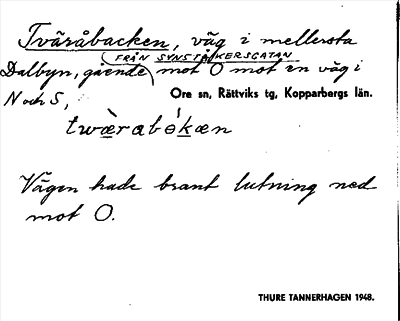 Tväråbacken, väg i mellersta
FRÅN SYNSTÅKERSGATAN
Dalbyn, gående mot O mot en väg i
N och S,
Ore sn, Rättviks tg, Kopparbergs län.
twæ̀rabɵ́kæn
Vägen hade brant lutning ned
mot O.
THURE TANNERHAGEN 1948.